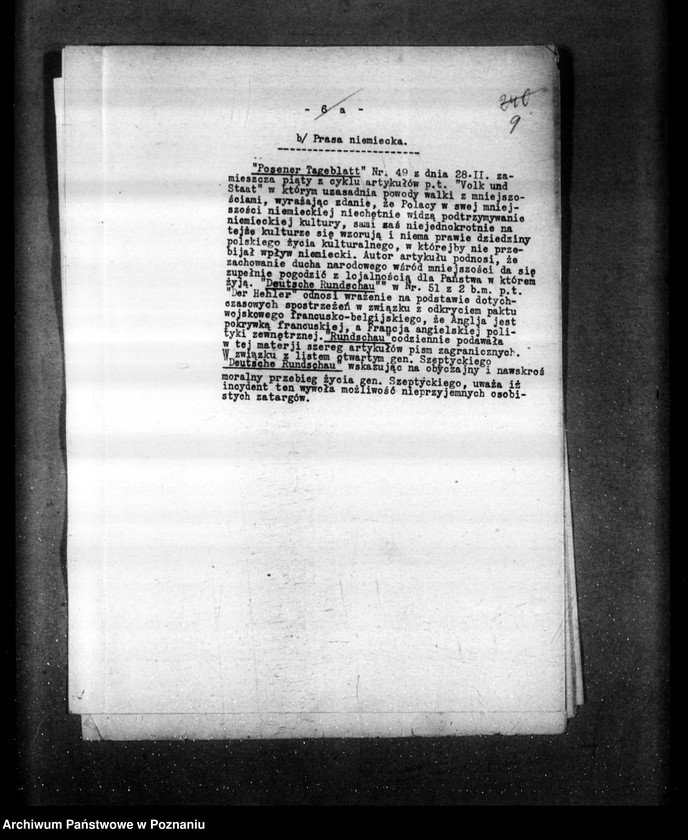 - 6 a -
240
9
b/ Prasa niemiecka.
"Posener Tageblatt" Nr. 49 z dnia 28.II. za-
mieszcza piąty z cyklu artykułów p.t. "Volk und
Staat" w którym uzasadnia powody walki z mniejszo-
ściami, wyrażając zdanie, że Polacy w swej mniej-
szości niemieckiej niechętnie widzą podtrzymywanie
niemieckiej kultury, sami zaś niejednokrotnie na
tejże kulturze się wzorują i niema prawie dziedziny
polskiego życia kulturalnego, w którejby nie prze-
bijał wpływ niemiecki. Autor artykułu podnosi, że
zachowanie ducha narodowego wśród mniejszości da się
zupełnie pogodzić z lojalnością dla Państwa w którem
żyją. "Deutsche Rundschau"" w Nr. 51 z 2 b.m. p.t.
"Der Hehler" odnosi wrażenie na podstawie dotych-
czasowych spostrzeżeń w związku z odkryciem paktu
wojskowego francusko-belgijskiego, że Anglja jest
pokrywką francuskiej, a Francja angielskiej poli-
tyki zewnętrznej. "Rundschau" codziennie podawała
w tej materji szereg artykułów pism zagranicznych.
W związku z listem otwartym gen. Szeptyckiego
"Deutsche Rundschau" wskazując na obyczajny i nawskroś
moralny przebieg życia gen. Szeptyckiego, uważa iż
incydent ten wywoła możliwość nieprzyjemnych osobi-
stych zatargów.
Archiwum Państwowe w Poznaniu